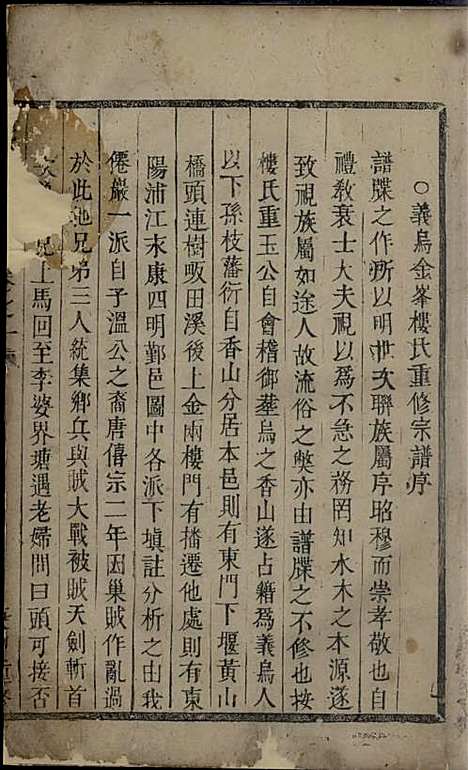 ○義烏金峯樓氏重修宗譜序
譜牒之作所以明世次聯族屬序昭穆而崇孝敬也自
禮教衰士大夫視以為不急之務罔知水木之本源遂
致視族屬如途人故流俗之獘亦由譜牒之不修也按
樓氏重玉公自會稽御葬烏之香山遂占籍為義烏人
以下孫枝藩衍自香山分居本邑則有東門下堰黃山
橋頭連樹畈田溪後上金兩樓門有播遷他處則有東
陽浦江永康四明鄞邑圖中各派下填註分析之由我
僊巖一派自予溫公之裔唐僖宗二年因巢賊作亂過
於此地兄弟三人統集鄉兵與賊大戰被賊天劍斬首
兄上馬回至李婆界塘遇老婦問曰頭可接否